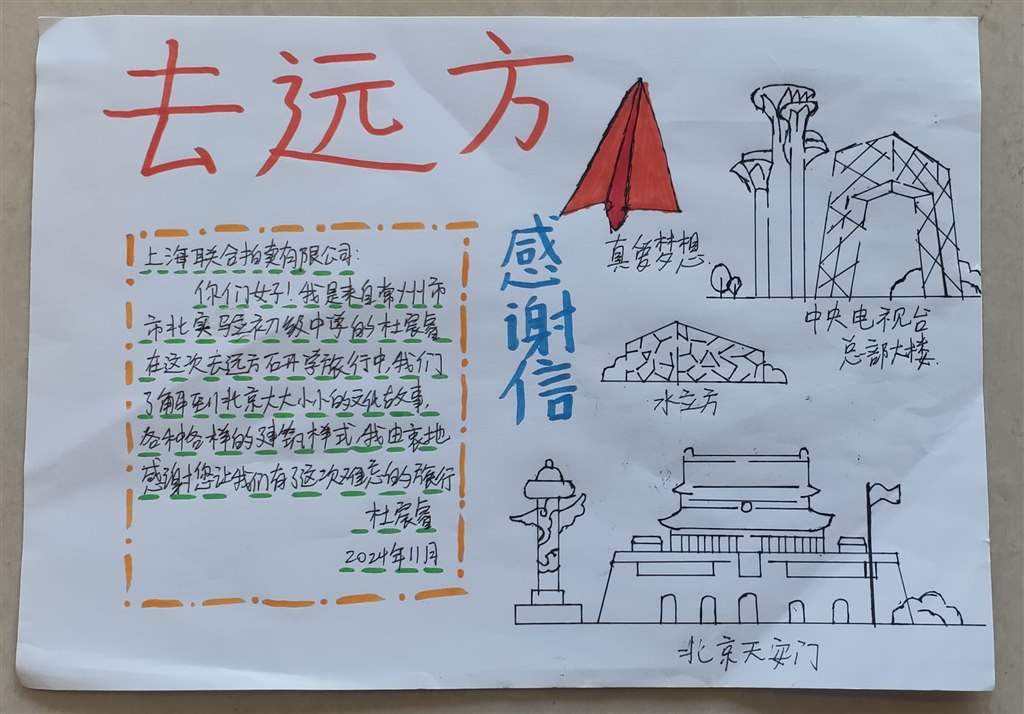 去远方
感谢信
上海联合拍卖有限公司:
你们好！我是来自常州市
市北实验初级中学的杜宸睿
在这次去远方研学旅行中,我们
了解到北京大大小小的文化故事,
各种各样的建筑样式,我由衷地
感谢您让我们有了这次难忘的旅行
杜宸睿
2024年11月
真爱梦想
中央电视台
总部大楼
水立方
北京天安门